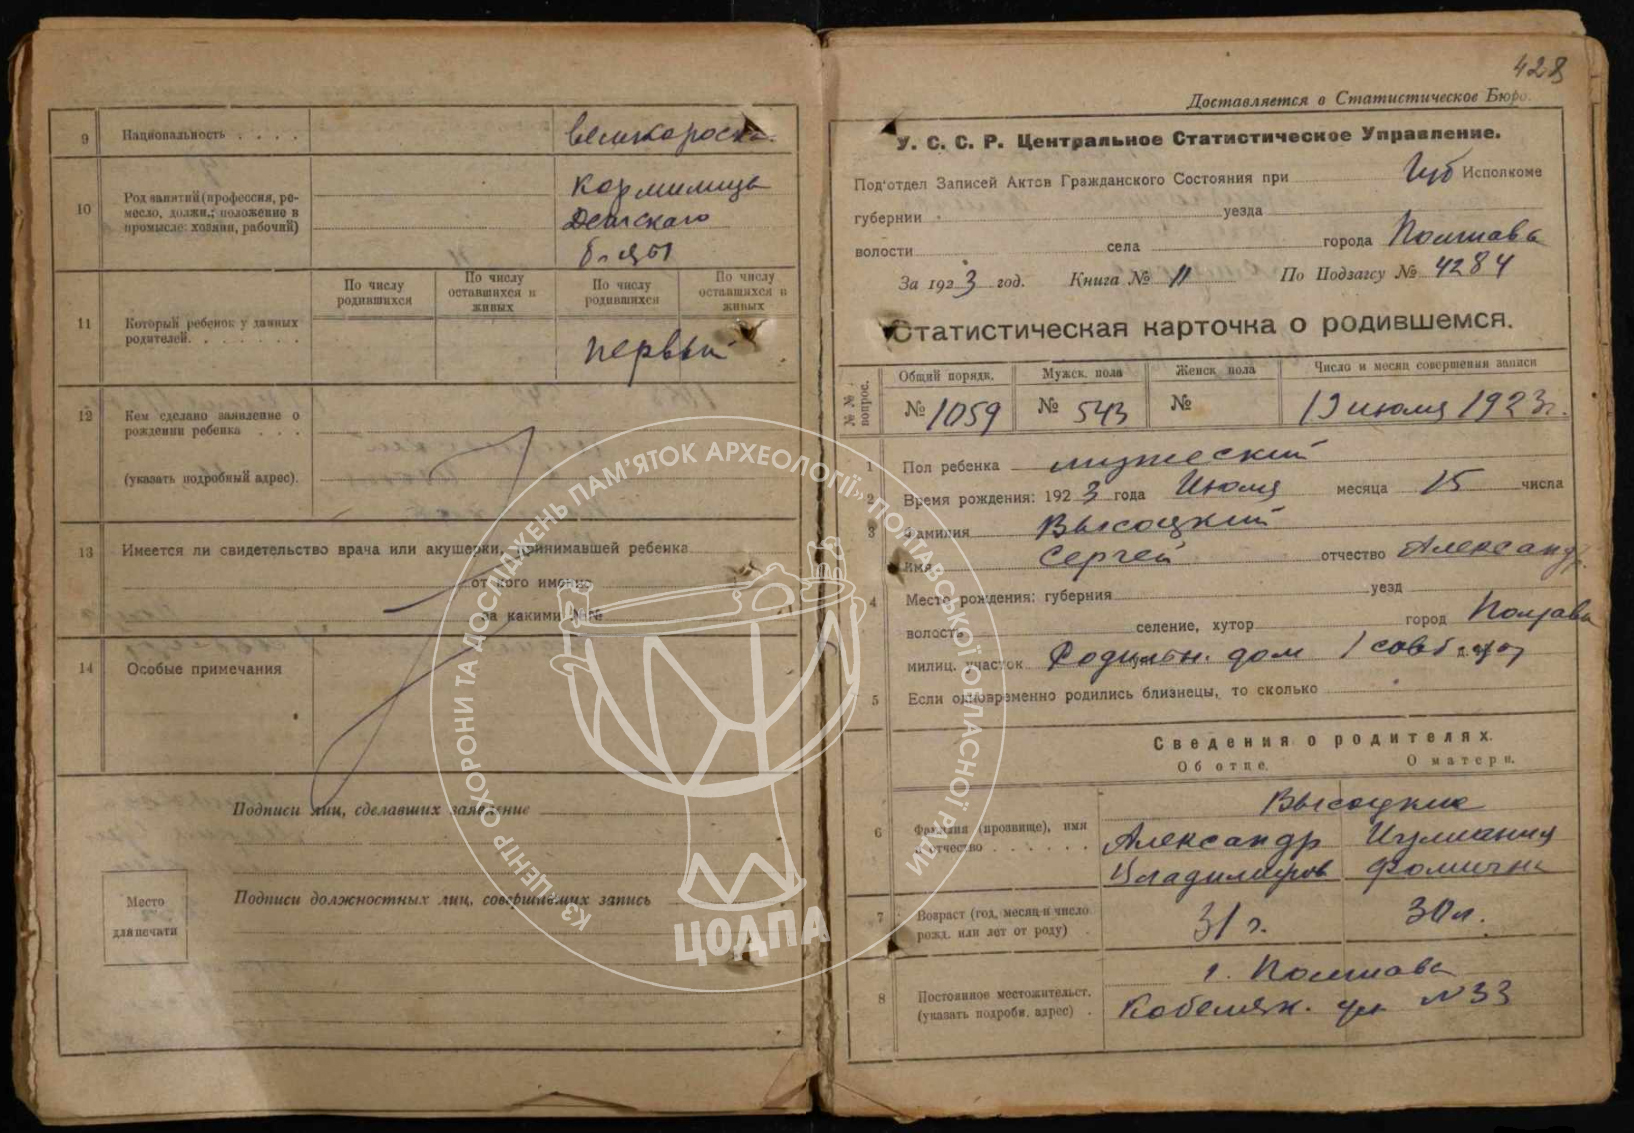 9 Национальность . . . . великоросска.
10 Род занятий (профессия, ре-
месло, должн.; положение в
промысле: хозяин, рабочий)
Кормилица
Детскаго
11 Который ребенок у данных
родителей. . . . . . .
По числу родившихся По числу оставшихся в живых По числу родившихся По числу оставшихся в живых
первый
12 Кем сделано заявление о
рождении ребенка . . .
(указать подробный адрес).
13 Имеется ли свидетельство врача или акушерки, принимавшей ребенка
от кого именно
за какими №№
14 Особые примечания
Подписи лиц, сделавших заявление
Подписи должностных лиц, совершивших запись
Место
для печати
428
Доставляется в Статистическое Бюро.
У. С. С. Р. Центральное Статистическое Управление.
Под'отдел Записей Актов Гражданского Состояния при Губ Исполкоме
губернии уезда
волости села города Полтава
За 1923 год. Книга № 11 По Подзагсу № 4284
Статистическая карточка о родившемся.
№ № вопрос.
Общий порядк. Мужск. пола Женск пола Число и месяц совершения записи
№ 1059 № 543 № июля 1923 г.
1 Пол ребенка мужеский
2 Время рождения: 1923 года Июля месяца 15 числа
3 Фамилия Высоцкий
имя Сергей отчество Александр.
4 Место рождения: губерния уезд
волость селение, хутор город Полтава
милиц. участок Родильн. дом 1 сов
5 Если одновременно родились близнецы, то сколько
Сведения о родителях.
Об отце. О матери.
6 Фамилия (прозвище), имя
и отчество . . . . . .
Высоцкие
Александр
Владимиров Фомична
7 Возраст (год, месяц и число
рожд. или лет от роду) .
31 г. 30 л.
8 Постоянное местожительст.
(указать подробн. адрес) .
г. Полтава
Кобеляк. ул №33
КЗ "ЦЕНТР ОХОРОНИ ТА ДОСЛІДЖЕНЬ ПАМ'ЯТОК АРХЕОЛОГІЇ" ПОЛТАВСЬКОЇ ОБЛАСНОЇ РАДИ
ЦОДПА